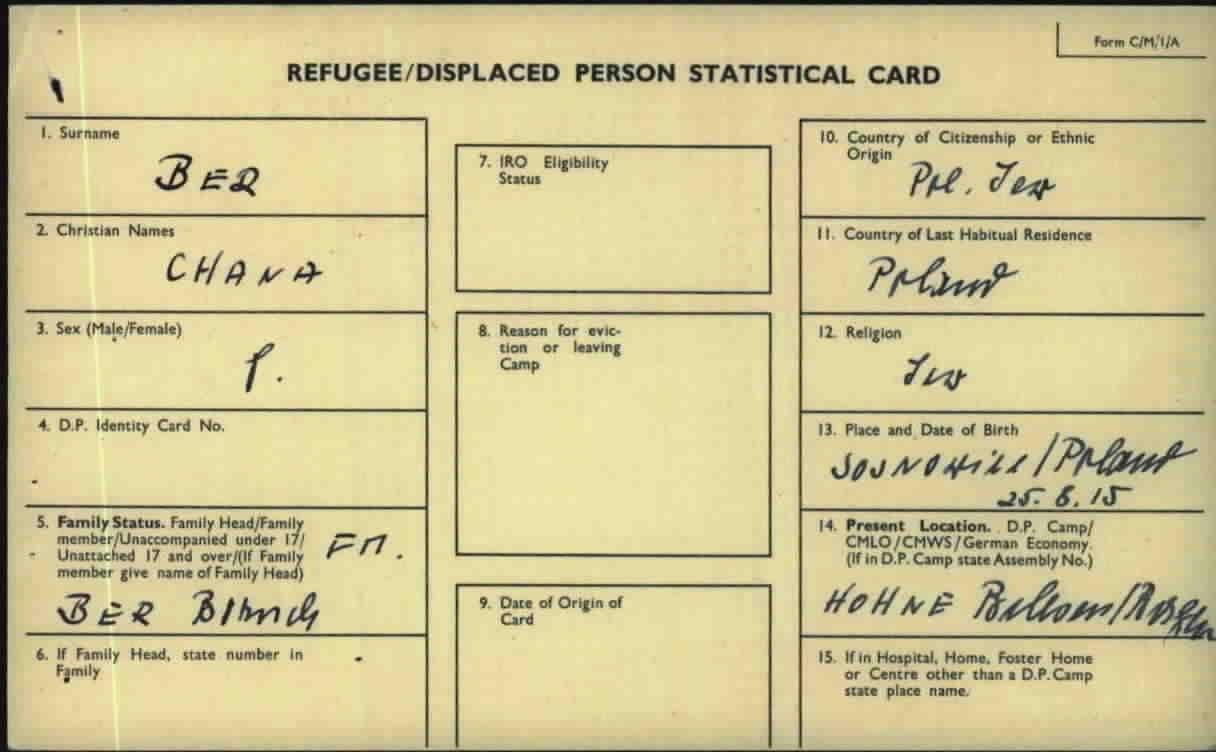 Form C/M/1/A
REFUGEE/DISPLACED PERSON STATISTICAL CARD
1. Surname
BER
2. Christian Names
CHANA
3. Sex (Male/Female)
f.
4. D.P. Identity Card No.
5. Family Status. Family Head/Family
member/Unaccompanied under 17/
Unattached 17 and over/(If Family
member give name of Family Head)
FM.
BER
6. If Family Head, state number in
Family
7. IRO Eligibility
Status
8. Reason for evic-
tion or leaving
Camp
9. Date of Origin of
Card
10. Country of Citizenship or Ethnic
Origin
Pol. Jew
11. Country of Last Habitual Residence
Poland
12. Religion
Jew
13. Place and Date of Birth
/Poland
14. Present Location. D.P. Camp/
CMLO/CMWS/German Economy.
(If in D.P. Camp state Assembly No.)
HOHNE
15. If in Hospital, Home, Foster Home
or Centre other than a D.P. Camp
state place name.